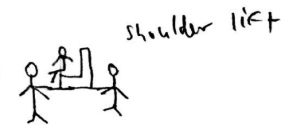 shoulder lift